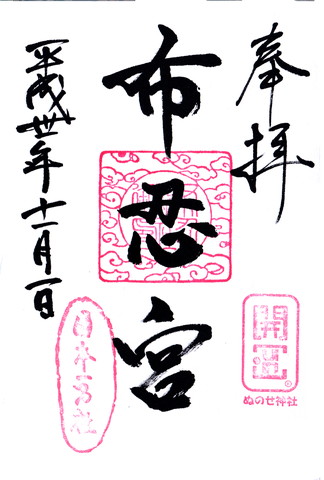 奉拝
布忍宮
平成卅年十一月一日
開運
ぬのせ神社